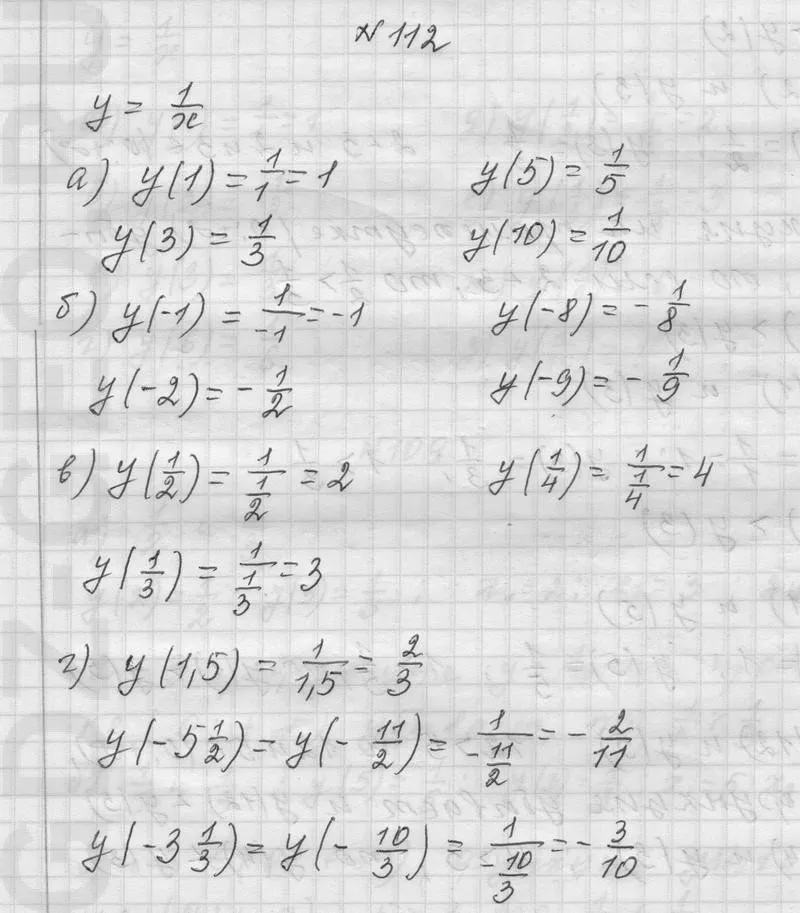 № 112
y = 1/x
а) y(1) = 1/1 = 1 y(5) = 1/5
y(3) = 1/3 y(10) = 1/10
б) y(-1) = 1/-1 = -1 y(-8) = -1/8
y(-2) = -1/2 y(-9) = -1/9
в) y(1/2) = 1/(1/2) = 2 y(1/4) = 1/(1/4) = 4
y(1/3) = 1/(1/3) = 3
г) y(1,5) = 1/1,5 = 2/3
y(-5 1/2) = y(-11/2) = 1/(-11/2) = -2/11
y(-3 1/3) = y(-10/3) = 1/(-10/3) = -3/10